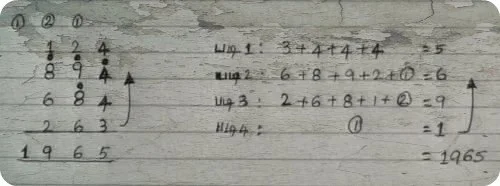 ① ② ①
1 2 4
8 9 4
6 8 4
2 6 3
1 9 6 5
3+4+4+4 = 5
6+8+9+2+① = 6
2+6+8+1+② = 9
① = 1
= 1965